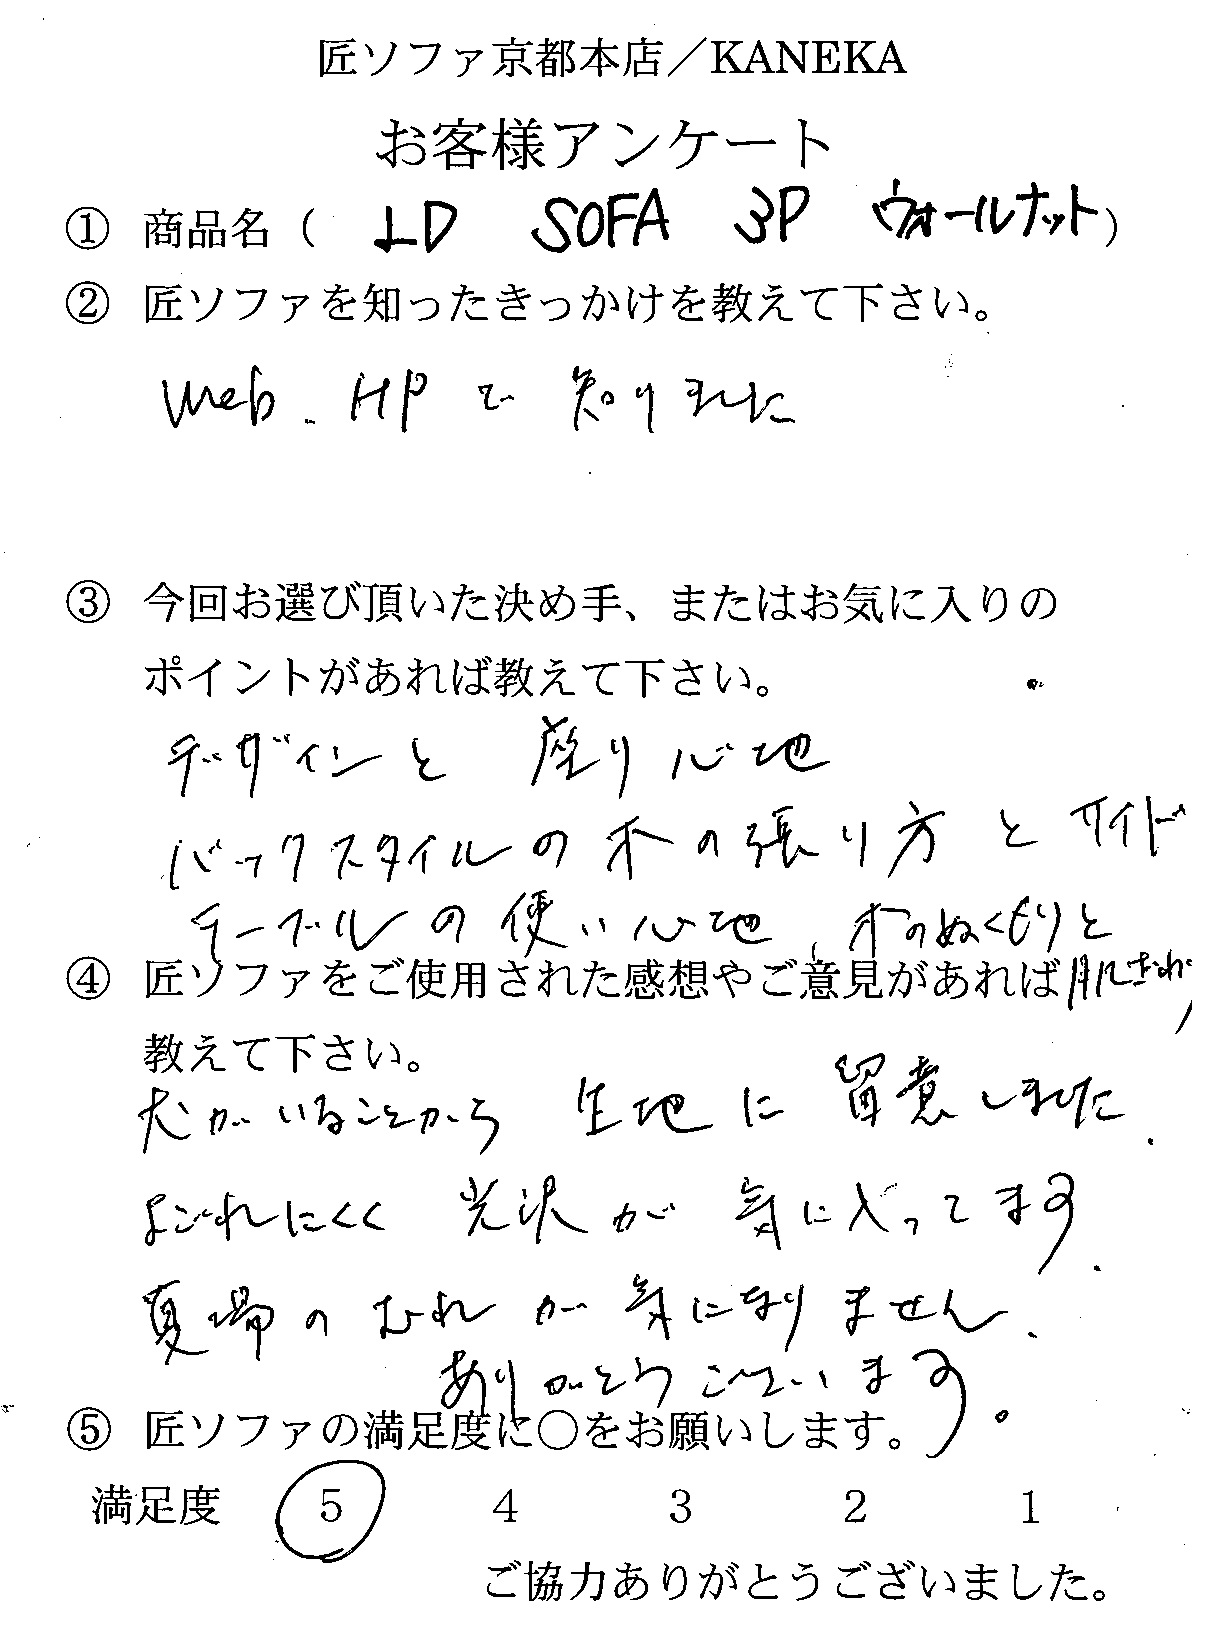 匠ソファ京都本店／KANEKA
お客様アンケート
① 商品名（ LD SOFA 3P ウォールナット）
② 匠ソファを知ったきっかけを教えて下さい。
Web、HPで知りました
③ 今回お選び頂いた決め手、またはお気に入りの
ポイントがあれば教えて下さい。
デザインと座り心地
バックスタイルの木の張り方とサイド
テーブルの使い心地、木のぬくもりと
肌ざわり
④ 匠ソファをご使用された感想やご意見があれば
教えて下さい。
犬がいることから生地に留意しました.
よごれにくく光沢が気に入ってます.
夏場のむれが気になりません.
ありがとうございます。
⑤ 匠ソファの満足度に○をお願いします。
満足度 5 4 3 2 1
ご協力ありがとうございました。